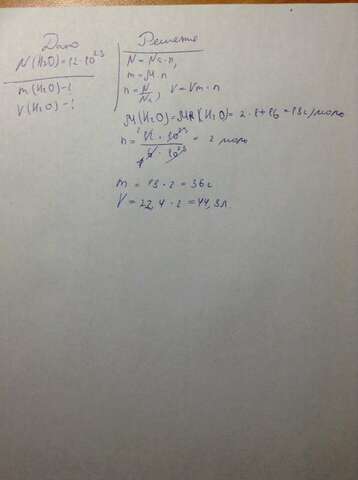 Дано
N(H₂O)=12·10²³
m(H₂O)-?
V(H₂O)-?
Решение
N = Nₐ·n,
m = M·n
n = N/Nₐ, V = Vm·n
M(H₂O)=Mr(H₂O)= 2·1+16 = 18г/моль
n = 12·10²³/6·10²³ = 2 моль
m = 18·2=36г
V = 22,4·2=44,8л